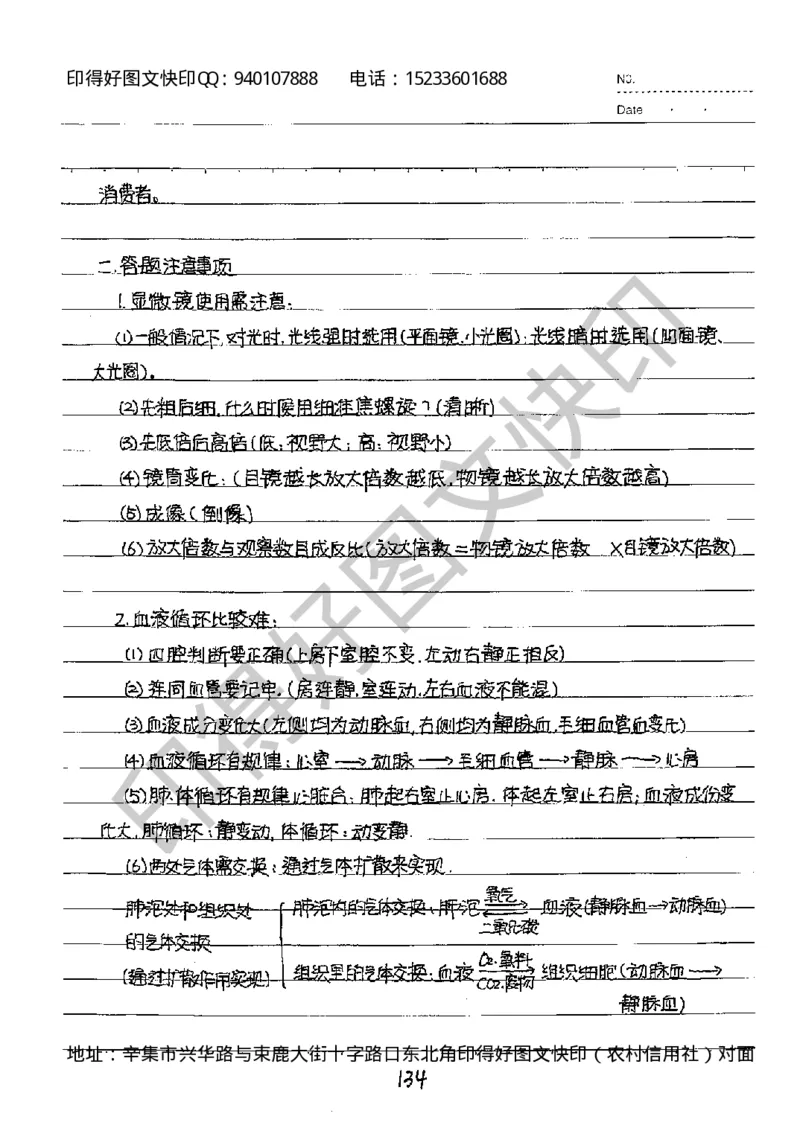 印得好图文快印QQ：940107888 电话：15233601688
No.
Date
消费者。
二.答题注意事项
1.显微镜使用需注意：
(1)一般情况下,对光时,光线强时选用(平面镜.小光圈)；光线暗时选用(凹面镜、
大光圈)。
(2)先粗后细,什么时候用细准焦螺旋？(清晰)
(3)先低倍后高倍(低：视野大；高：视野小)
(4)镜筒变化：(目镜越长放大倍数越低.物镜越长放大倍数越高)
(5)成像(倒像)
(6)放大倍数与观察数目成反比(放大倍数＝物镜放大倍数 ×目镜放大倍数)
2.血液循环比较难：
(1)四腔判断要正确(上房下室腔不变.左动右静正相反)
(2)连同血管要记牢.(房连静,室连动.左右血液不能混)
(3)血液成分变化大(左侧均为动脉血,右侧均为静脉血.毛细血管血变化)
(4)血液循环有规律：心室→动脉→毛细血管→静脉→心房
(5)肺.体循环有规律心脏合：肺起右室止心房.体起左室止右房；血液成份变
化大.肺循环：静变动,体循环：动变静.
(6)两处气体需交换：通过气体扩散来实现.
肺泡处和组织处
的气体交换
(通过扩散作用实现)
肺泡内的气体交换：肺泡 氧气⇌二氧化碳 血液(静脉血→动脉血)
组织里的气体交换：血液 O₂.氧料⇌CO₂.废物 组织细胞(动脉血→
静脉血)
地址：辛集市兴华路与束鹿大街十字路口东北角印得好图文快印（农村信用社）对面
134
印得好图文快印